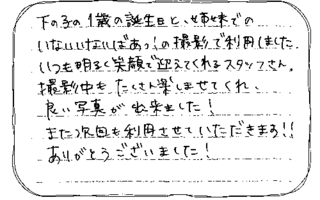 下の子の1歳の誕生日と、姉妹での
いないいないばあっ!の撮影で利用しました
いつも明るく笑顔で迎えてくれるスタッフさん。
撮影中もたくさん楽しませてくれ、
良い写真が出来ました!
また次回も利用させていただきます!!
ありがとうございました!